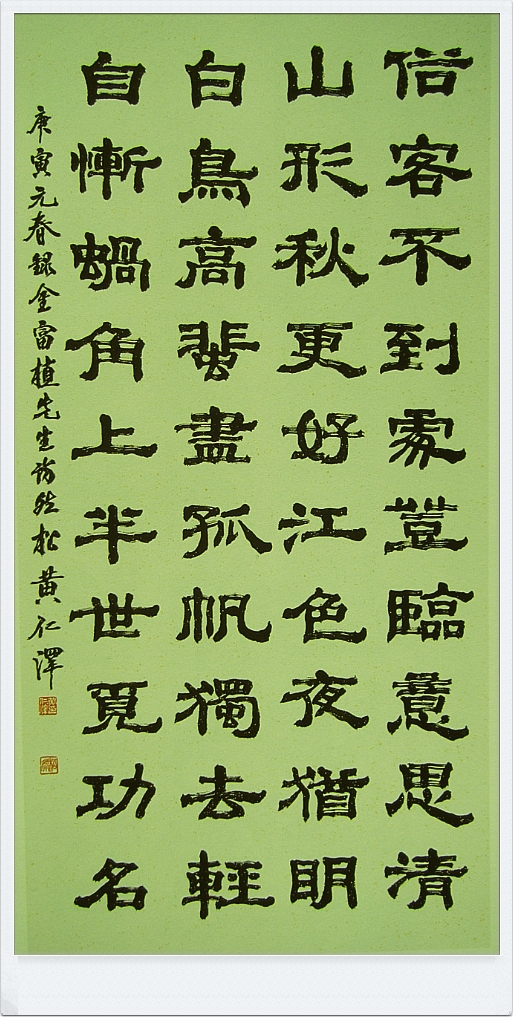 俗客不到處登臨意思清
山形秋更好江色夜猶明
白鳥高蜚盡孤帆獨去輕
自慚蝸角上半世覓功名
庚寅元春錄金富植先生詩然松黃仁澤